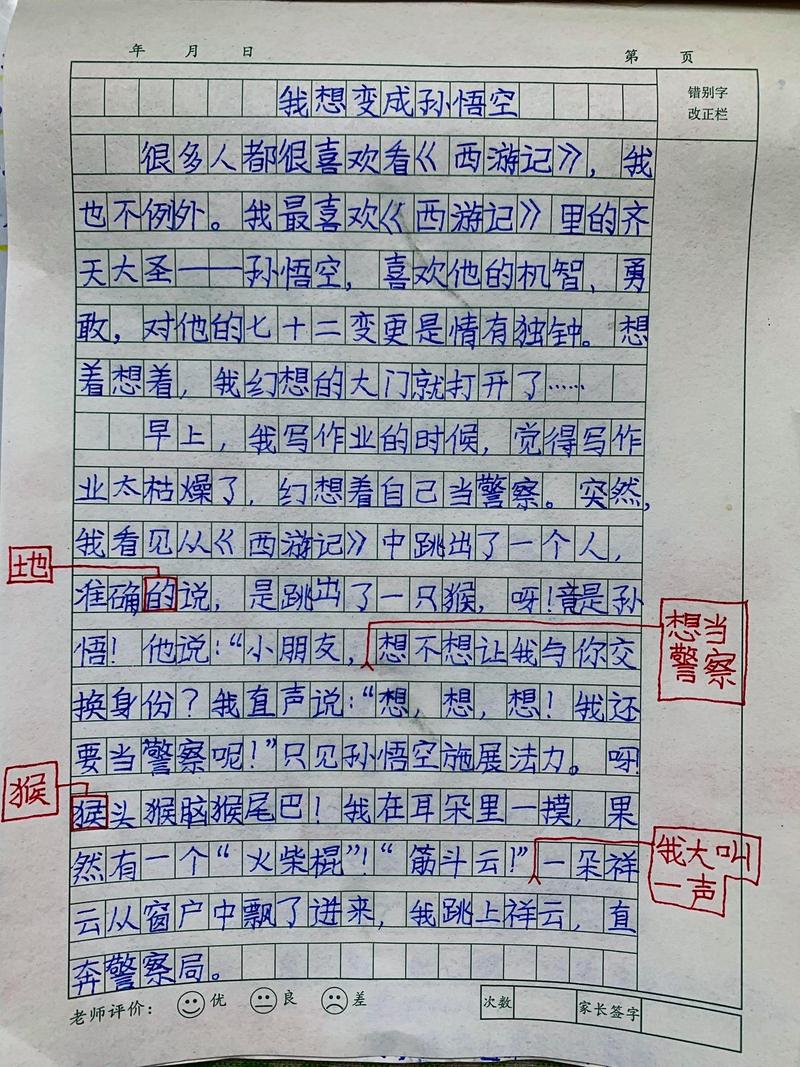 年 月 日 第 页
错别字
改正栏
我想变成孙悟空
很多人都很喜欢看《西游记》，我
也不例外。我最喜欢《西游记》里的齐
天大圣——孙悟空，喜欢他的机智、勇
敢，对他的七十二变更是情有独钟。想
着想着，我幻想的大门就打开了……
早上，我写作业的时候，觉得写作
业太枯燥了，幻想着自己当警察。突然，
我看见从《西游记》中跳出了一个人，
地
准确的说，是跳出了一只猴，呀！竟是孙
想当
警察
悟！他说：“小朋友，想不想让我与你交
换身份？我直声说：“想，想，想！我还
要当警察呢！”只见孙悟空施展法力。呀
猴
猴头猴脑猴尾巴！我在耳朵里一摸，果
我大叫
一声
然有一个“火柴棍”！“筋斗云！”一朵祥
云从窗户中飘了进来，我跳上祥云，直
奔警察局。
老师评价： 优 良 差 次数 家长签字